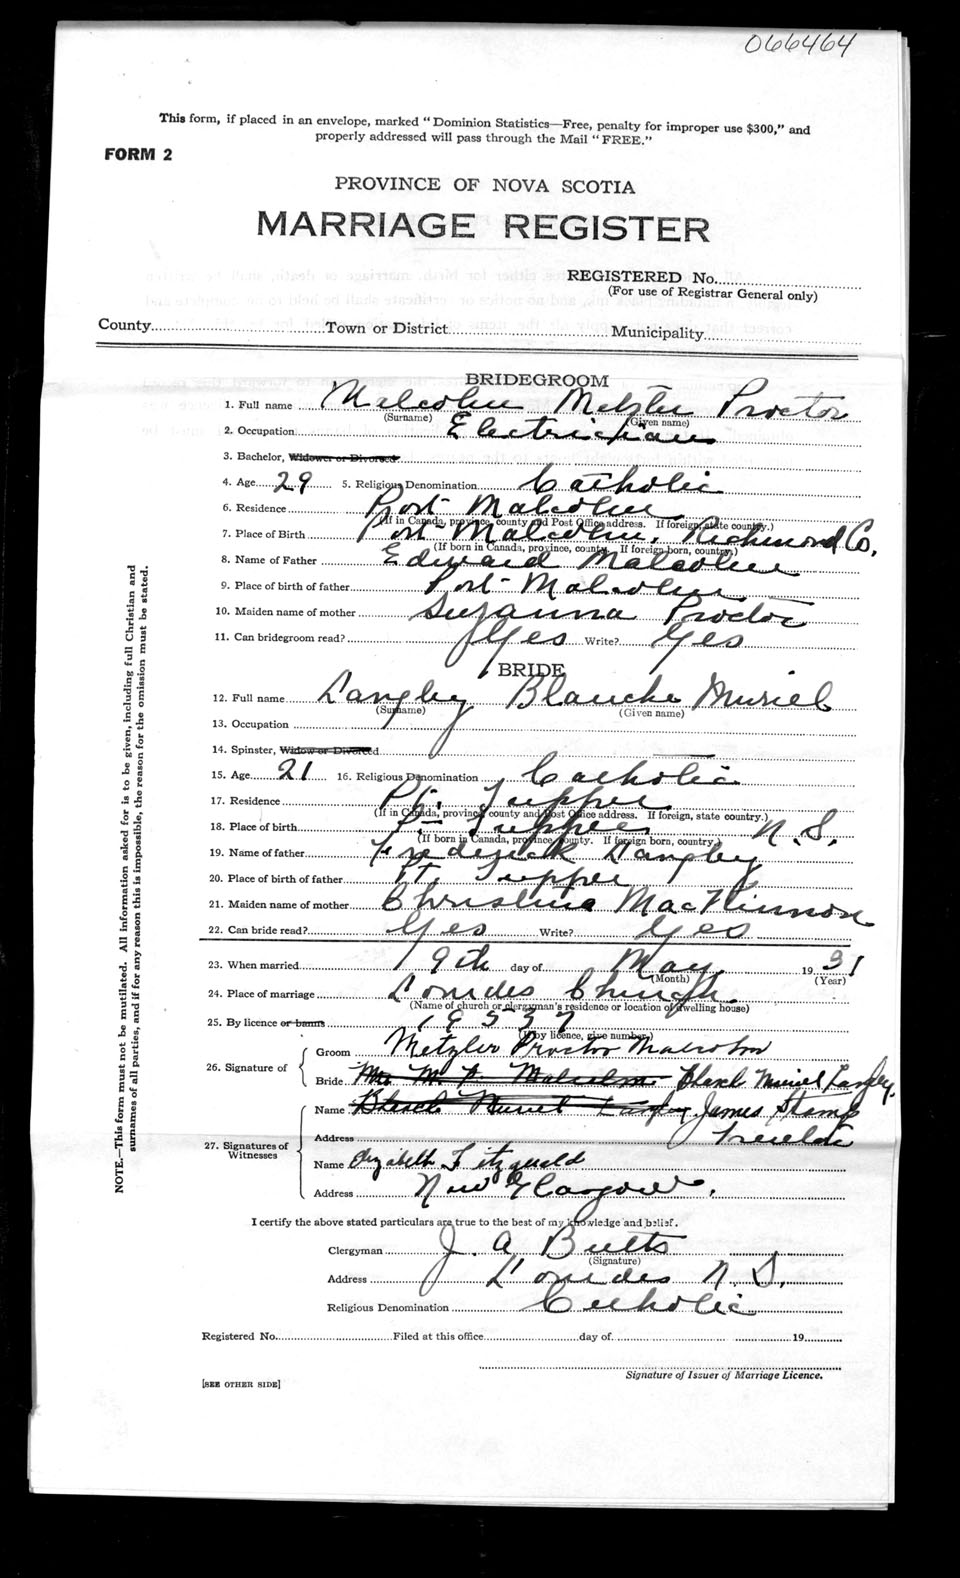 066464
This form, if placed in an envelope, marked "Dominion Statistics—Free, penalty for improper use $300," and
properly addressed will pass through the Mail "FREE."
FORM 2
PROVINCE OF NOVA SCOTIA
MARRIAGE REGISTER
REGISTERED No.
(For use of Registrar General only)
County Town or District Municipality
BRIDEGROOM
1. Full name Malcolm Metzler Proctor
(Surname) (Given name)
2. Occupation Electrician
3. Bachelor, Widower or Divorced
4. Age 29 5. Religious Denomination Catholic
6. Residence Port Malcolm
(If in Canada, province, county and Post Office address. If foreign, state country.)
7. Place of Birth Port Malcolm, Richmond Co.
(If born in Canada, province, county. If foreign born, country.)
8. Name of Father Edward Malcolm
9. Place of birth of father Port Malcolm
10. Maiden name of mother Suzanna Proctor
11. Can bridegroom read? Yes Write? Yes
BRIDE
12. Full name Langley Blanche Muriel
(Surname) (Given name)
13. Occupation
14. Spinster, Widow or Divorced
15. Age 21 16. Religious Denomination Catholic
17. Residence Pt. Tupper
(If in Canada, province, county and Post Office address. If foreign, state country.)
18. Place of birth Pt. Tupper N.S.
(If born in Canada, province, county. If foreign born, country.)
19. Name of father Frederick Langley
20. Place of birth of father Pt. Tupper
21. Maiden name of mother Christina MacKinnon
22. Can bride read? Yes Write? Yes
23. When married 19th day of May 1931
(Month) (Year)
24. Place of marriage L'ourdes Church
(Name of church or clergyman's residence or location of dwelling house)
25. By licence or banns 19537
(If by licence, give number)
26. Signature of
Groom Metzler Proctor Malcolm
Bride Mrs M. P. Malcolm Blanch Muriel Langley.
27. Signatures of Witnesses
Name Blanch Muriel Langley James Stamp
Address
Name Elizabeth Fitzgerald
Address New Glasgow.
I certify the above stated particulars are true to the best of my knowledge and belief.
Clergyman J. A. Butts
(Signature)
Address L'ourdes N.S.
Religious Denomination Catholic
Registered No. Filed at this office day of 19
Signature of Issuer of Marriage Licence.
[SEE OTHER SIDE]
NOTE.—This form must not be mutilated. All information asked for is to be given, including full Christian and
surnames of all parties, and if for any reason this is impossible, the reason for the omission must be stated.